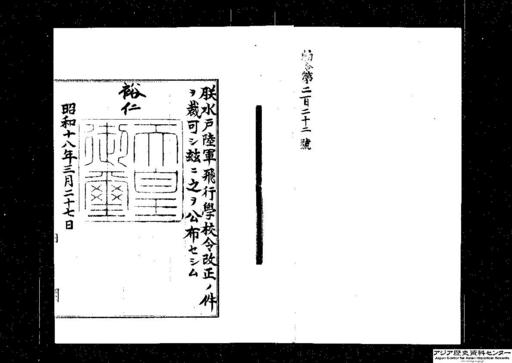 勅令第二百二十二號
朕水戸陸軍飛行學校令改正ノ件
ヲ裁可シ玆ニ之ヲ公布セシム
裕仁
天皇
御璽
昭和十八年三月二十七日
アジア歴史資料センター
Japan Center for Asian Historical Records